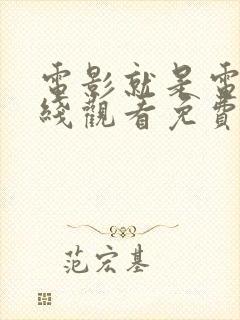 電影就是電
綫觀看免費
范宏基